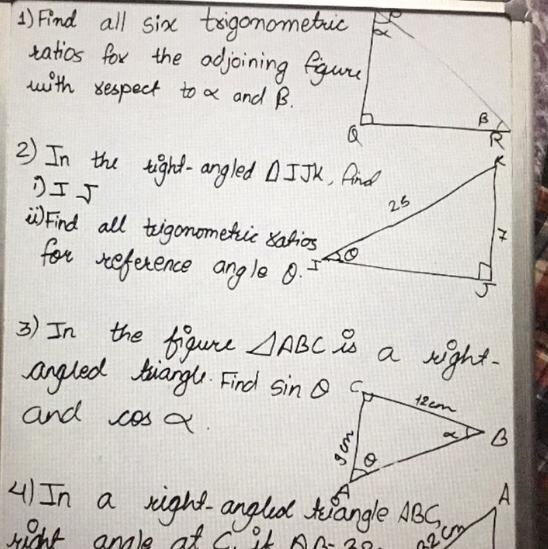 1) Find all six trigonometric
ratios for the adjoining figure
with respect to α and β.
P
α
Q
β
R
2) In the right-angled ΔIJK, find
i) I J
ii) Find all trigonometric ratios
for reference angle θ.
K
25
7
I
θ
J
3) In the figure ΔABC is a right-
angled triangle. Find sin θ
and cos α.
C
12cm
9cm
α
B
θ
A
4) In a right-angled triangle ABC,
right angle at C, if AB=
A